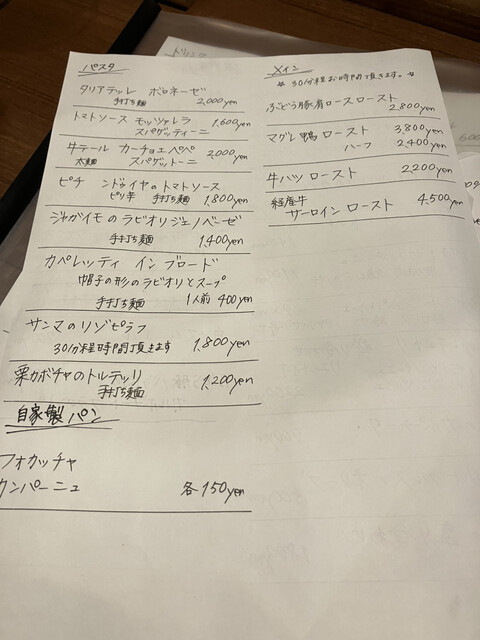 パスタ
タリアテッレ ボロネーゼ
手打ち麺 2,000yen
トマトソース モッツァレラ 1,600yen
スパゲッティーニ
牛テール カーチョエペペ 2,000yen
太麺 スパゲットーニ
ピチ ンドゥイヤのトマトソース
ピリ辛 手打ち麺 1,800yen
ジャガイモのラビオリ ジェノベーゼ
手打ち麺 1,400yen
カペレッティ イン ブロード
帽子の形のラビオリとスープ
手打ち麺 1人前 400yen
サンマのリゾピラフ
30分程時間頂きます 1,800yen
栗カボチャのトルテッリ 1,200yen
手打ち麺
自家製パン
フォカッチャ
カンパーニュ 各150yen
メイン
☆30分程お時間頂きます。☆
ぶどう豚肩ロースロースト
2,800yen
マグレ鴨ロースト 3,800yen
ハーフ 2,400yen
牛ハツロースト 2,200yen
経産牛 4,500yen
サーロインロースト